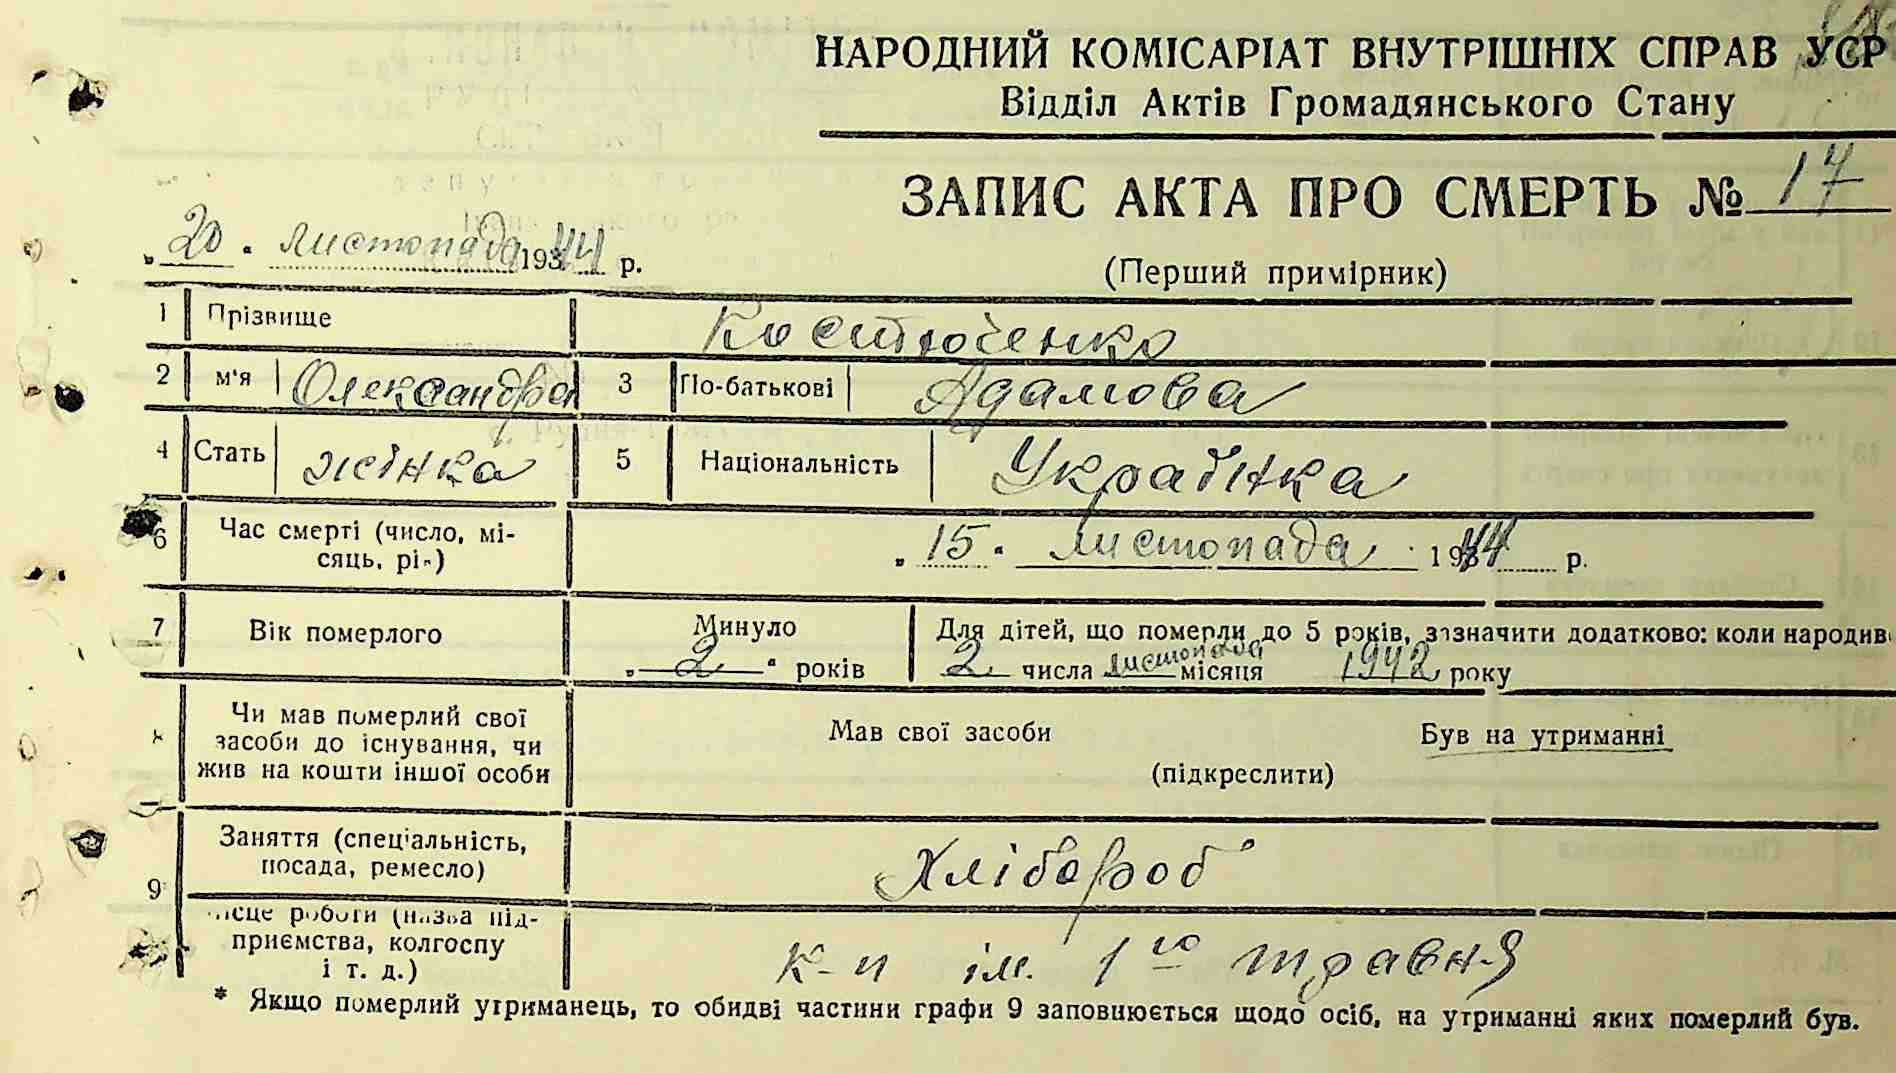 НАРОДНИЙ КОМІСАРІАТ ВНУТРІШНІХ СПРАВ УСР
Відділ Актів Громадянського Стану
ЗАПИС АКТА ПРО СМЕРТЬ № 17
„20" листопада 1944 р.
(Перший примірник)
1 Прізвище Костюченко
2 м'я Олександра 3 По-батькові Адамова
4 Стать жінка 5 Національність Українка
6 Час смерті (число, мі-
сяць, рі-)
„15" листопада 1944 р.
7 Вік померлого Минуло Для дітей, що померли до 5 років, зазначити додатково: коли народив
„2" років 2 числа листопада місяця 1942 року
Чи мав померлий свої
засоби до існування, чи
жив на кошти іншої особи
Мав свої засоби Був на утриманні
(підкреслити)
9 Заняття (спеціальність,
посада, ремесло)
Хлібороб
ісце роботи (назва під-
приємства, колгоспу
і т. д.)
к-п ім. 1го травня
* Якщо померлий утриманець, то обидві частини графи 9 заповнюється щодо осіб, на утриманні яких померлий був.